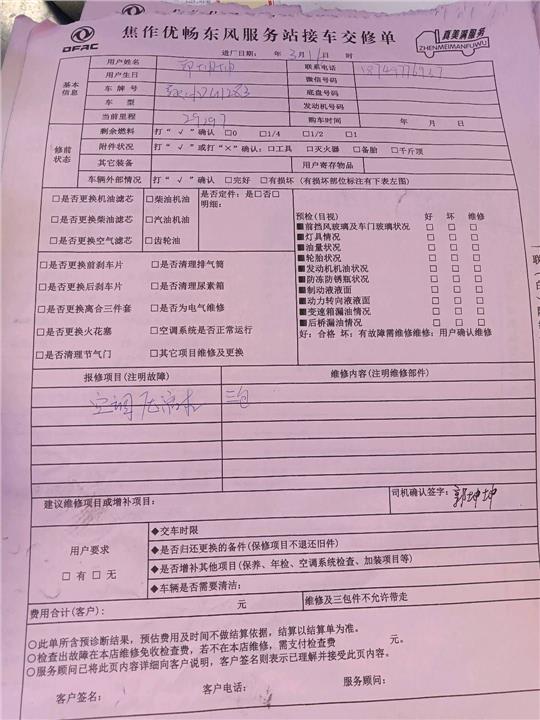 DFAC
焦作优畅东风服务站接车交修单
真美满服务
ZHENMEIMANFUWU
进厂日期： 年 3月11日 时
基本信息
用户姓名 郭坤坤 联系电话
用户生日 微信号码
车牌号 底盘号
车型 发动机号码
当前里程 29297 购车时间 年 月 日
修前状态
剩余燃料 打“√”确认 □0 □1/4 □1/2 □1
附件状况 打“√”或打“×”确认：□工具 □灭火器 □备胎 □千斤顶
其它装备 用户寄存物品
车辆外部情况 打“√”确认 □完好 □有损坏（有损坏部位标注有下表左图）
□是否更换机油滤芯 □柴油机油 是否定件：是□否□
明细：
□是否更换柴油滤芯 □汽油机油
□是否更换空气滤芯 □齿轮油
□是否更换前刹车片 □是否清理排气筒
□是否更换后刹车片 □是否清理尿素箱
□是否更换离合三件套 □是否为电气维修
□是否更换火花塞 □空调系统是否正常运行
□是否清理节气门 □其它项目维修及更换
预检(目视) 好 坏 维修
■前挡风玻璃及车门玻璃状况 □ □ □
■灯具情况 □ □ □
■油量状况 □ □ □
■轮胎状况 □ □ □
■发动机机油状况 □ □ □
■防冻防锈瓶状况 □ □ □
■制动液液面 □ □ □
■动力转向液液面 □ □ □
■变速箱漏油情况 □ □ □
■后桥漏油情况 □ □ □
好：合格 坏：有故障需维修维修：用户确认维修
报修项目(注明故障) 维修内容(注明维修部件)
空调 三包
建议维修项目或增补项目： 司机确认签字：郭坤坤
用户要求
□有 □无
◆交车时限
◆是否归还更换的备件(保修项目不退还旧件)
◆是否增补其他项目(保养、年检、空调系统检查、加装项目等)
◆车辆是否需要清洁：
费用合计(客户)： 元 维修及三包件不允许带走
○此单所含预诊断结果，预估费用及时间不做结算依据，结算以结算单为准。
○检查出故障在本店维修免收检查费，若不在本店维修，需支付检查费 元。
○服务顾问已将此页内容详细向客户说明，客户签名则表示已理解并接受此页内容。
客户签名： 客户电话： 服务顾问：